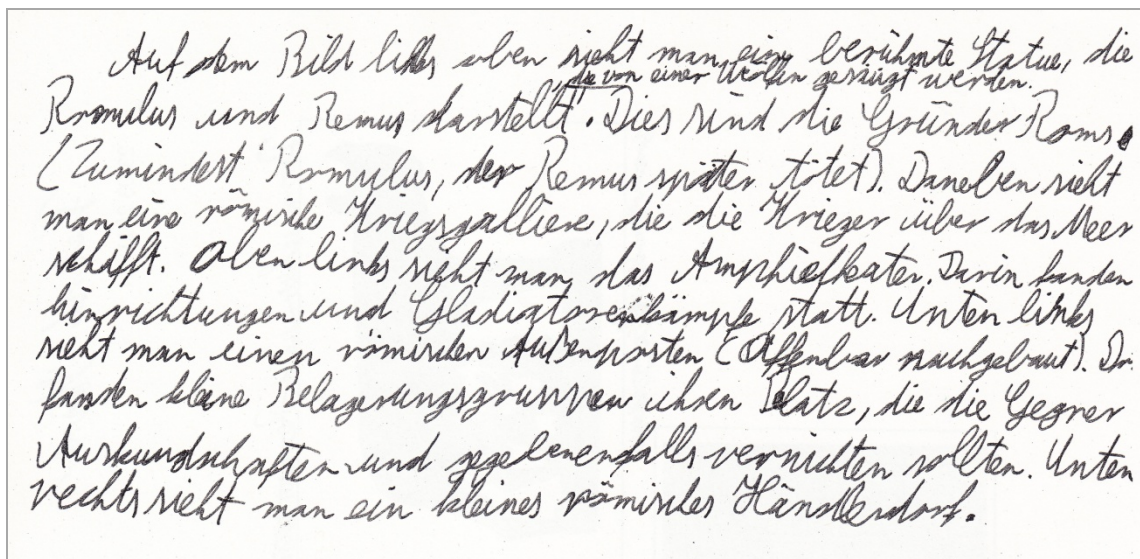 Auf dem Bild links oben sieht man eine berühmte Statue, die
die von einer Wölfin gesäugt werden.
Romulus und Remus darstellt. Dies sind die Gründer Roms.
(Zumindest Romulus, der Remus später tötet). Daneben sieht
man eine römische Kriegsgalliere, die die Krieger über das Meer
schifft. Oben links sieht man das Amphietheater. Darin fanden
hinrichtungen und Gladiatorenkämpfe statt. Unten links
sieht man einen römischen Außenposten (Offenbar nachgebaut). Da
fanden kleine Belagerungsgruppen ihren Platz, die die Gegner
Auskundschaften und gegebenenfalls vernichten sollten. Unten
rechts sieht man ein kleines römisches Händlerdorf.